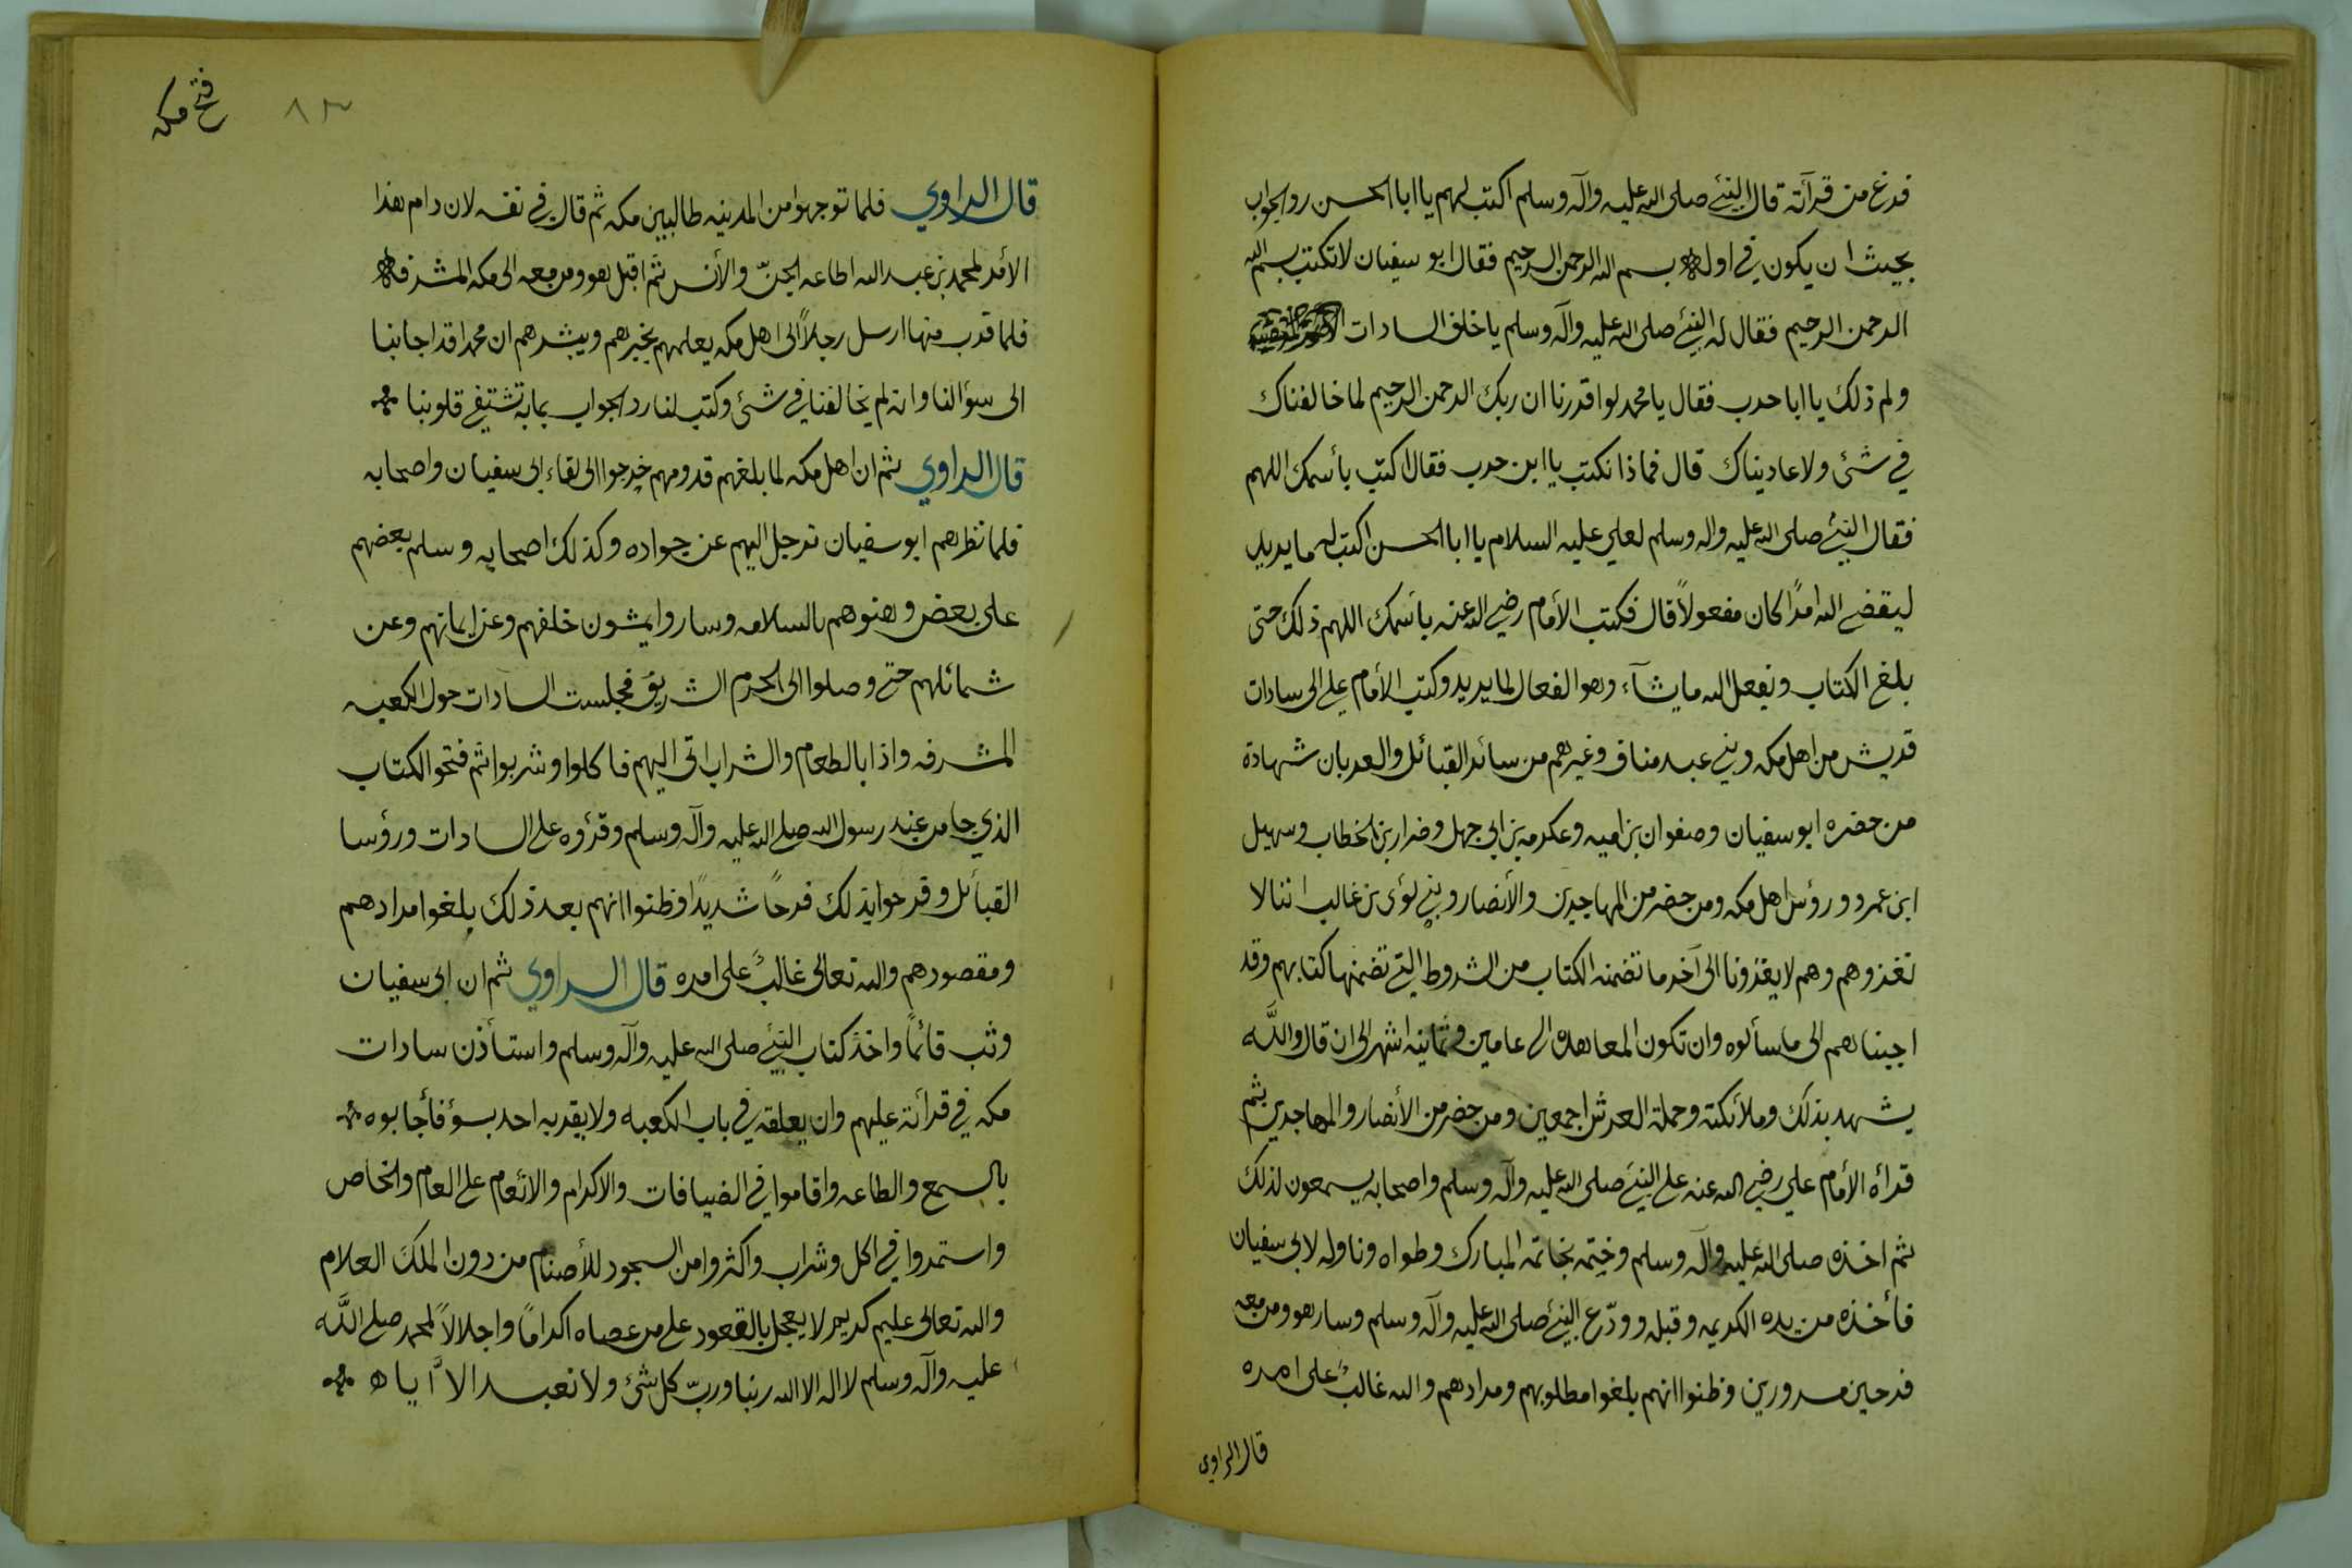 فرغ من قرآئة قال النبي صلى الله عليه وآله وسلم اكتب لهم يا ابا الحسن رد الجواب
بحيث ان يكون في اوله بسم الله الرحمن الرحيم فقال ابو سفيان لا تكتب بسم الله
الرحمن الرحيم فقال له النبي صلى الله عليه وآله وسلم يا خلف السادات
ولم ذلك يا ابا حرب فقال يا محمد لو اقررنا ان ربك الرحمن الرحيم لما خالفناك
في شئ ولا عاديناك قال فماذا نكتب يا ابن حرب فقال اكتب بأسمك اللهم
فقال النبي صلى الله عليه واله وسلم لعلي عليه السلام يا ابا الحسن اكتب لهم ما يريد
ليقضي الله امرًا كان مفعولاً قال فكتب الأمام رضي الله عنه بأسمك اللهم ذلك حتى
بلغ الكتاب ويفعل الله ما يشآء وهو الفعال لما يريد وكتب الأمام علي الى سادات
قريش من اهل مكه وبني عبد مناف وغيرهم من سائر القبائل والعربان شهادة
من حضره ابو سفيان وصفوان بن اميه وعكرمه بن ابي جهل وضرار بن الخطاب وسهيل
ابن عمرو ورؤسا اهل مكه ومن حضر من المهاجرين والأنصار وبني لؤى بن غالب اننا لا
نغزوهم وهم لا يغزونا الى آخر ما تضمنه الكتاب من الشروط التي تضمنها كتابهم وقد
اجبناهم الى ما سألوه وان تكون المعاهده الى عامين وثمانية اشهر الى ان قال والله
يشهد بذلك وملأئكته وحملة العرش اجمعين ومن حضر من الأنصار والمهاجرين ثم
قرأه الأمام علي رضي الله عنه على النبي صلى الله عليه وآله وسلم واصحابه يسمعون لذلك
ثم اخذه صلى الله عليه وآله وسلم وختمه بخاتمه المبارك وطواه وناوله لابي سفيان
فأخذه من يده الكريمه وقبله وودّع النبي صلى الله عليه وآله وسلم وسار هو ومن معه
فرحين مسرورين وظنوا انهم بلغوا مطلوبهم ومرادهم والله غالبٌ على امره
قال الراوي
فتح مكه
٨٣
قال الراوي فلما توجهوا من المدينه طالبين مكه ثم قال في نفسه لان دام هذا
الأمر لمحمد بن عبد الله اطاعه الجنّ والأنس ثم اقبل هو ومن معه الى مكه المشرفه
فلما قرب منها ارسل رجلاً الى اهل مكه يعلمهم بخبرهم ويبشرهم ان محمدا قد اجابنا
الى سؤالنا وانه لم يخالفنا في شئ وكتب لنا رد الجواب بما به تشتفي قلوبنا
قال الراوي ثم ان اهل مكه لما بلغهم قدومهم خرجوا الى لقاء ابي سفيان واصحابه
فلما نظرهم ابو سفيان ترجل اليهم عن جواده وكذلك اصحابه وسلم بعضهم
على بعض وهنوهم بالسلامه وساروا يمشون خلفهم وعن ايمانهم وعن
شمائلهم حتى وصلوا الى الحرم الشريف فجلست السادات حول الكعبه
المشرفه واذا بالطعام والشراب اتى اليهم فاكلوا وشربوا ثم فتحو الكتاب
الذي جا من عند رسول الله صلى الله عليه وآله وسلم وقرؤه على السادات ورؤسا
القبآئل وفرحوا بذلك فرحًا شديدًا وظنوا انهم بعد ذلك بلغوا مرادهم
ومقصودهم والله تعالى غالبٌ على امره قال الراوي ثم ان ابي سفيان
وثب قائمًا واخذ كتاب النبي صلى الله عليه وآله وسلم واستأذن سادات
مكه في قرأته عليهم وان يعلقه في باب الكعبه ولا يقربه احد بسؤ فأجابوه
بالسمع والطاعه واقاموا في الضيافات والاكرام والانعام على العام والخاص
واستمروا في اكل وشراب واكثروا من السجود للأصنام من دون الملك العلام
والله تعالى عليم كريم لا يعجل بالقعود على من عصاه اكرامًا واجلالاً لمحمد صلى الله
عليه وآله وسلم لا اله الا الله ربنا وربّ كل شئ ولا نعبد الاّ اياه